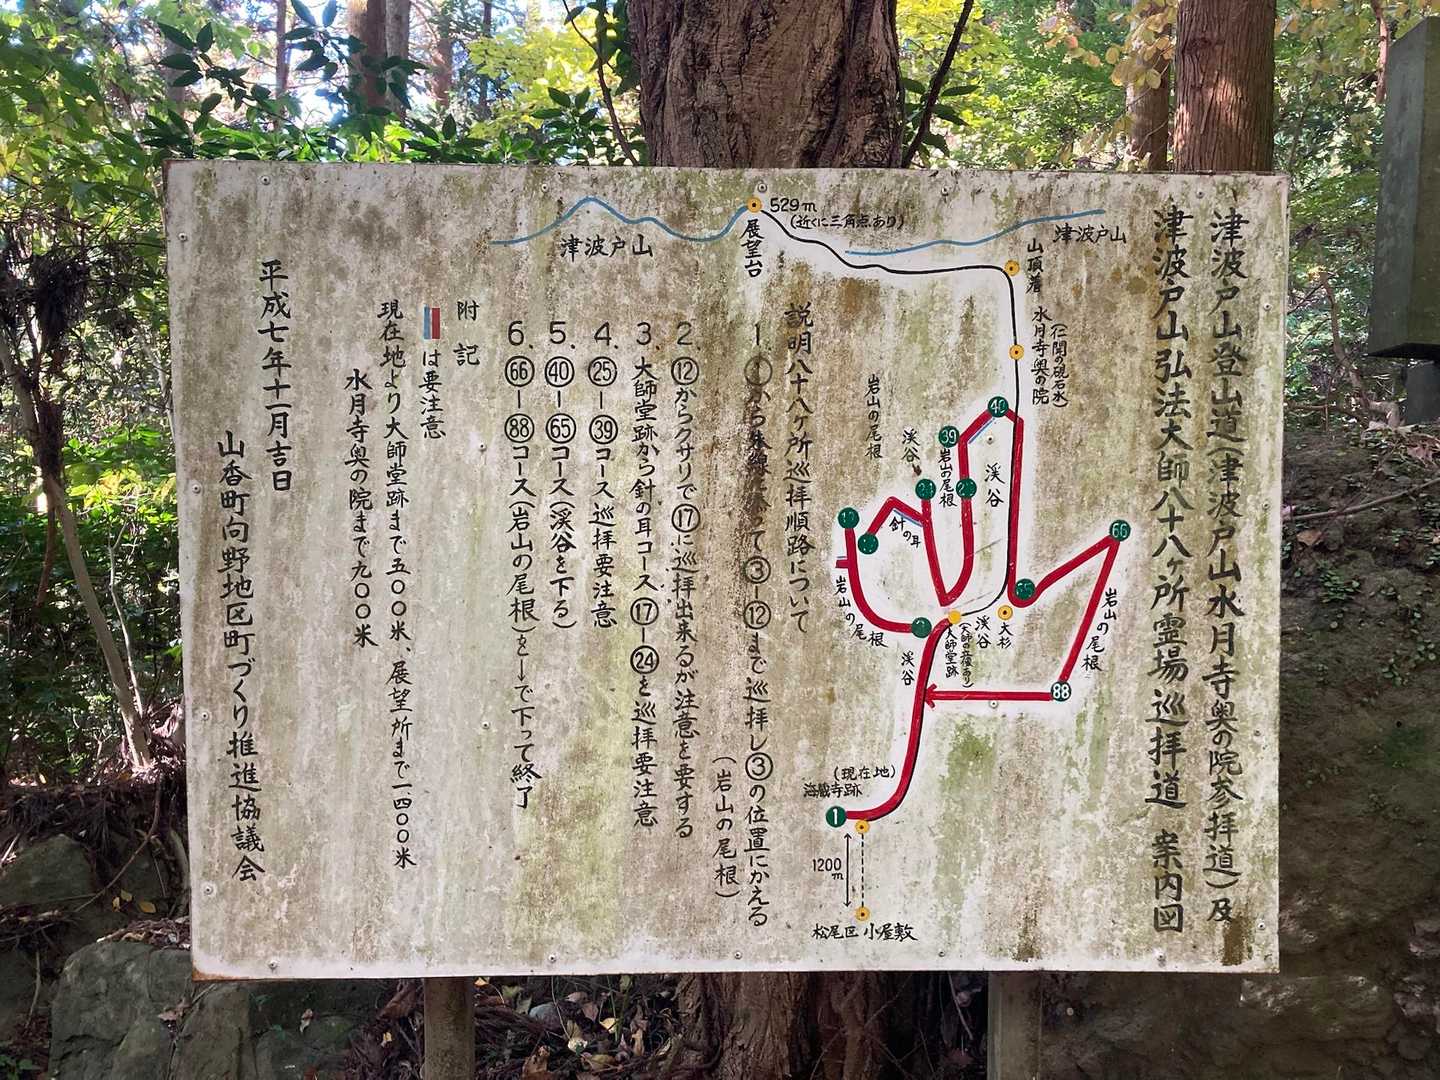 津波戸山登山道(津波戸山水月寺奥の院参拝道)及
津波戸山弘法大師八十八ヶ所霊場巡拝道 案内図
529m
(近くに三角点あり)
展望台
津波戸山
津波戸山
山頂着
(仁聞の硯石水)
水月寺奥の院
40
39
岩山の尾根
渓谷
岩山の尾根
渓谷
針の耳
66
岩山の尾根
88
大杉
渓谷
大師堂跡
岩山の尾根
渓谷
(現在地)
海蔵寺跡
1
1200m
松尾区 小屋敷
説明八十八ヶ所巡拝順路について
1. ①から って③-⑫まで巡拝し③の位置にかえる
(岩山の尾根)
2 ⑫からクサリで⑰に巡拝出来るが注意を要する
3. 大師堂跡から針の耳コース⑰-㉔を巡拝要注意
4. ㉕-㊴コース巡拝要注意
5. ㊵-65コース(渓谷を下る)
6. 66-88コース(岩山の尾根)を→で下って終了
附記
は要注意
現在地より大師堂跡まで五〇〇米、展望所まで一四〇〇米
水月寺奥の院まで九〇〇米
平成七年十一月吉日
山香町向野地区町づくり推進協議会